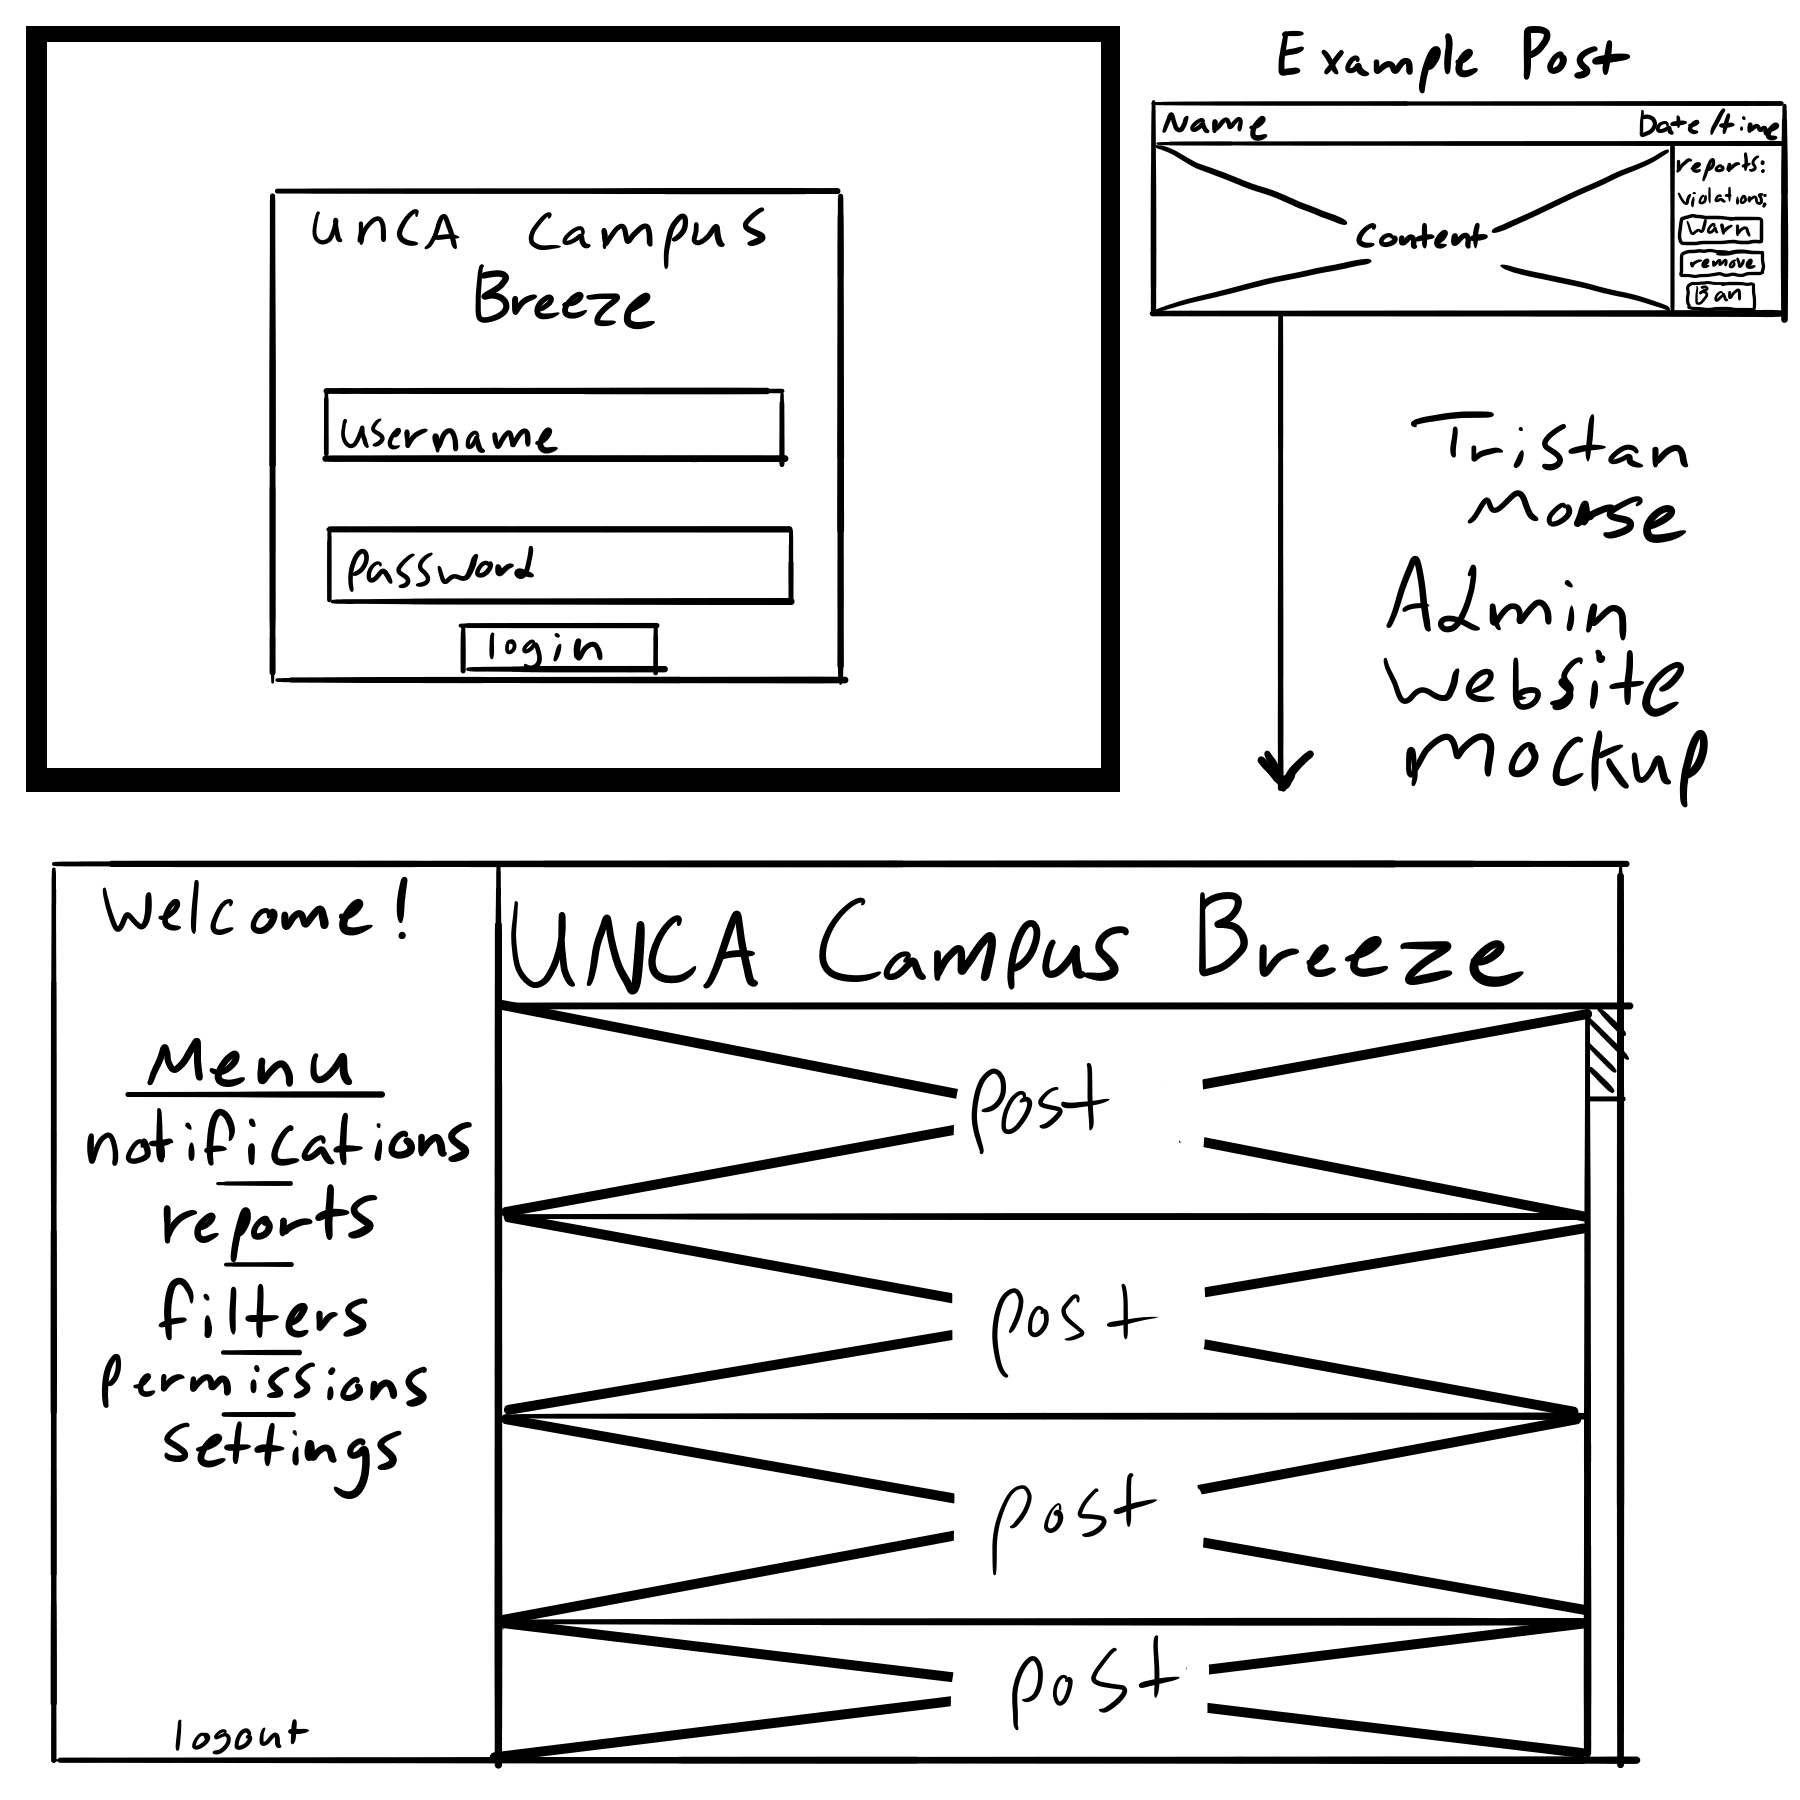 UNCA Campus
Breeze
username
password
login
Example Post
Name
Date/time
Content
reports:
violations:
Warn
remove
Ban
Tristan
Morse
Admin
Website
Mockup
Welcome!
Menu
notifications
reports
filters
permissions
settings
logout
UNCA Campus Breeze
post
post
post
post